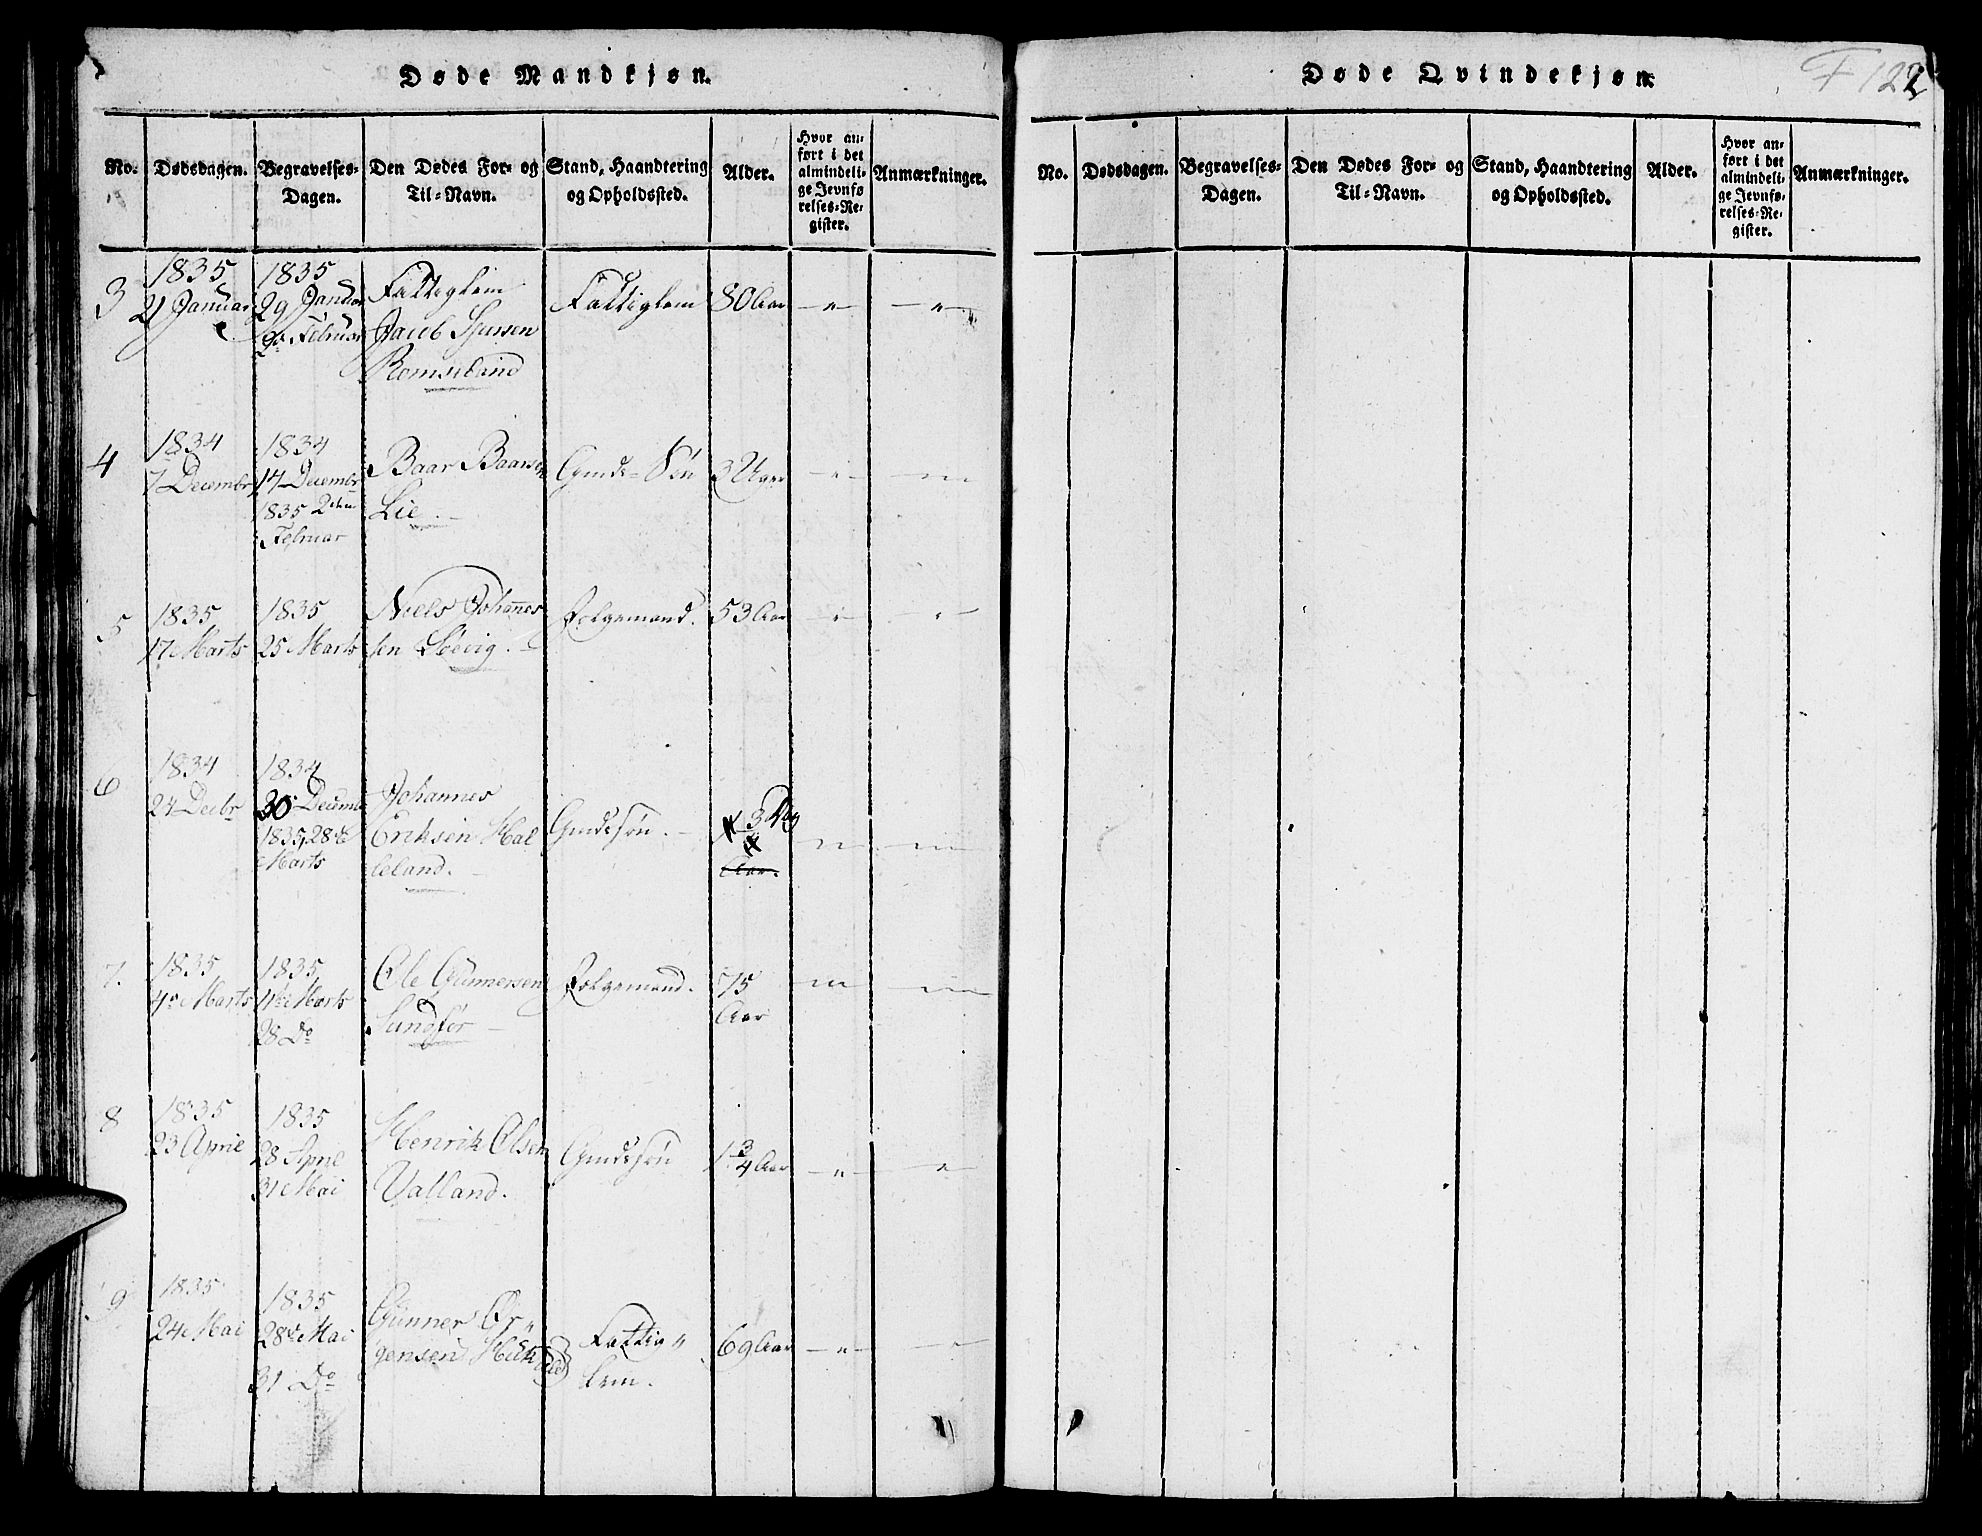 Døde Mandkjøn.
No. Dødsdagen. Begravelses-Dagen. Den Dødes For- og Til-Navn. Stand, Haandtering og Opholdssted. Alder. Hvor anført i det almindelige Jevnførelses-Register. Anmærkninger.
3 1835 1835 Fattiglem Fattiglem 80 Aar – " – – " –
21 Januar 29 Januar Jacob Sjursen
Februar Romseland
4 1834 1834 Baar Baarsen Gmds-Søn 3 Uger – " – – " –
7 Decembr 17 Decembr Lie.
1835 2den
Februar
5 1835 1835 Niels Johannes Folgemand. 53 Aar – " – "
17 Marts 25 Marts sen Søevig.
6 1834 1834 Johannes
24 Decbr 30 Decembr Eriksen Hal Gmdssøn. 3
1835, 28de leland. Aar.
Marts
7. 1835 1835 Ole Gunnersen Folgemand. 75 – " – – " –
4de Marts 11te Marts Sundfør Aar
28 Do
8 1835 1835 Henrik Olsen Gmdssøn 1 3/4 Aar – " – – " –
23 April 28 April Valland.
31 Mai
9 1835 1835 Gunner Ør„ Fattig„ 69 Aar – " – – " –
24 Mai 28de Mai gensen lem.
31 Do
Døde Qvindekjøn.
F 122
No. Dødsdagen. Begravelses-Dagen. Den Dødes For- og Til-Navn. Stand, Haandtering og Opholdssted. Alder. Hvor anført i det almindelige Jevnførelses-Register. Anmærkninger.